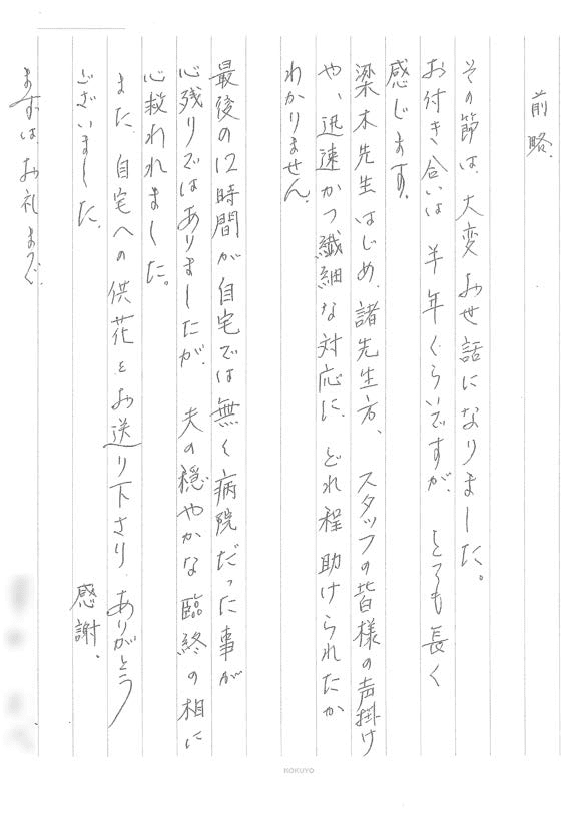 前略.
その節は、大変お世話になりました。
お付き合いは半年くらいですが、とても長く
感じます。
梁木先生はじめ、諸先生方、スタッフの皆様の声掛け
や、迅速かつ繊細な対応に、どれ程助けられたか
わかりません。
最後の12時間が自宅では無く病院だった事が
心残りではありましたが、夫の穏やかな臨終の相に
心救われました。
また、自宅への供花をお送り下さり、ありがとう
ございました。
感謝.
まずはお礼まで.
KOKUYO